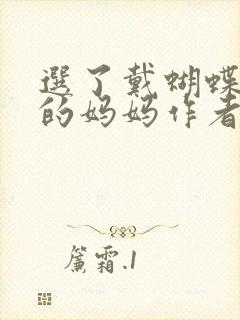 選了戴蝴蝶
的妈妈作者
簾霜.1